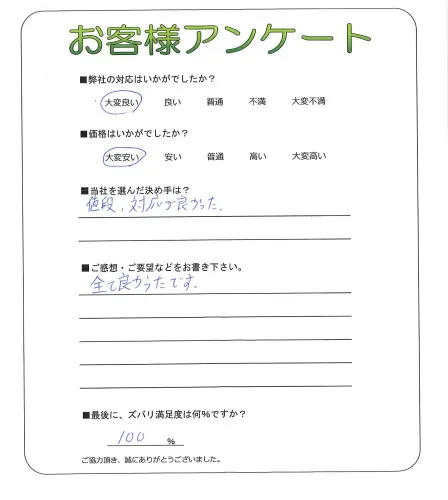 お客様アンケート
■弊社の対応はいかがでしたか？
大変良い 良い 普通 不満 大変不満
■価格はいかがでしたか？
大変安い 安い 普通 高い 大変高い
■当社を選んだ決め手は？
値段、対応が良かった。
■ご感想・ご要望などをお書き下さい。
全て良かったです。
■最後に、ズバリ満足度は何％ですか？
100 ％
ご協力頂き、誠にありがとうございました。